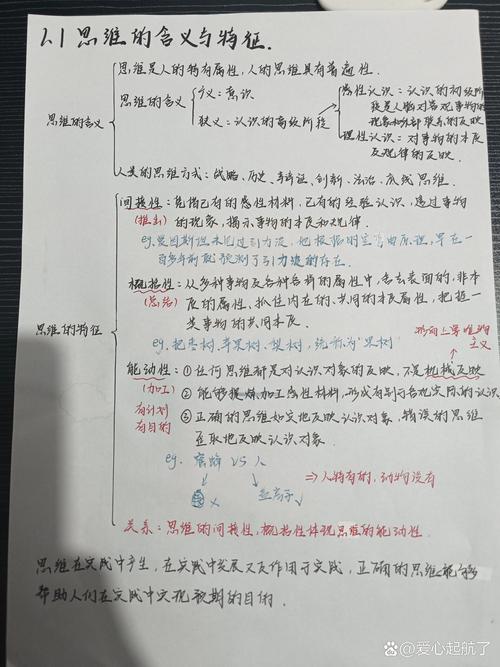 1.1 思维的含义与特征.
思维是人的特有属性,人的思维具有普遍性.
思维的含义
思维的含义
广义:意识
狭义:认识的高级阶段
感性认识:认识的初级阶
段是人脑对客观事物的
现象和外部联系的反映
理性认识:对事物的本质
及规律的反映.
人类的思维方式:战略、历史、辩证、创新、法治、底线思维.
思维的特征
间接性:凭借已有的感性材料,已有的经验认识,通过事物
(推出)
的现象,揭示事物的本质和规律.
eg.爱因斯坦未见过引力波,他根据
一百多年前就预测了引力波的存在.
概括性:从多种事物及各种各样的属性中,舍去表面的、非本
(总结)
质的属性,抓住内在的、共同的本质属性,把握一
类事物的共同本质.
eg.把枣树、苹果树、梨树,统称为"果树"
形而上学唯物
主义
能动性:①任何思维都是对认识对象的反映,不是机械反映
(加工)
②能够 加工感性材料,形成有别于客观实际的认识
有计划
有目的
③正确的思维如实地反映认识对象,错误的思维
歪曲地反映认识对象.
eg.蜜蜂 VS 人
⇒人特有的,动物没有
×
√
关系:思维的间接性,概括性体现思维的能动性.
思维在实践中产生,在实践中发展又反作用于实践,正确的思维能够
帮助人们在实践中实现预期的目的.
@爱心起航了